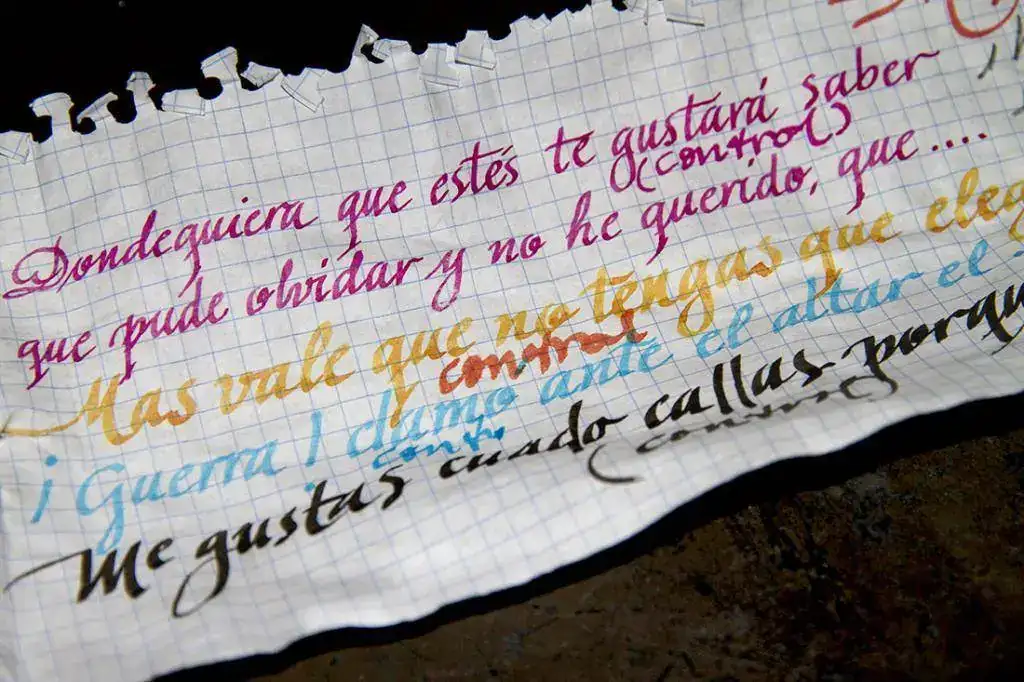 Dondequiera que estés te gustará saber
(control)
que pude olvidar y no he querido, que....
Mas vale que no tengas que eleg
control
¡Guerra! clamo ante el altar el
contr
Me gustas cuado callas porqu
(control)